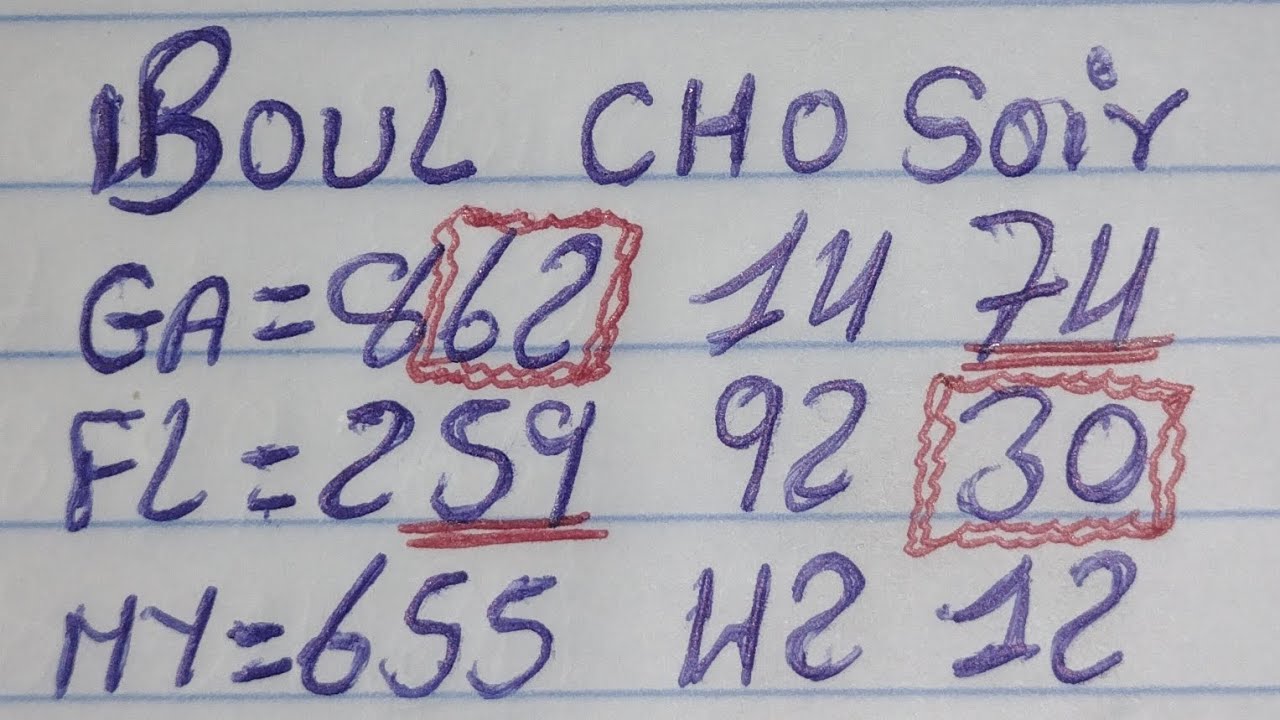 BOUL CHO Soir
GA = 862 14 74
FL = 259 92 30
NY = 655 42 12